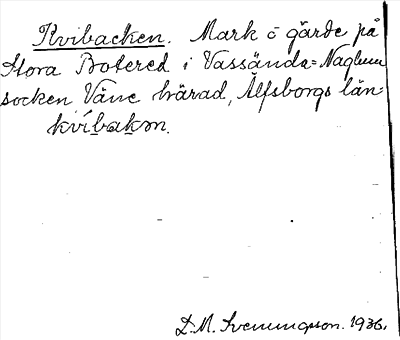 Kvibacken. Mark o gärde på
Stora Botered i Vassända=Naglum
socken, Väne härad, Älfsborgs län.
kvíbakm.
D.M. Svenungson. 1936.